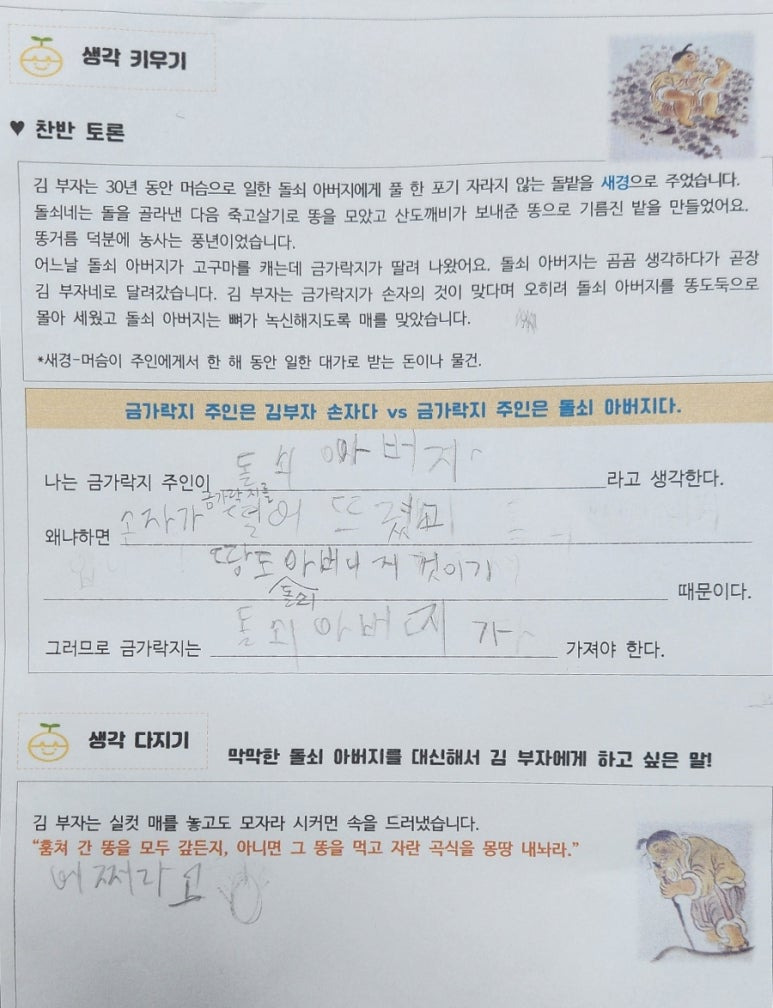 생각 키우기
♥ 찬반 토론
김 부자는 30년 동안 머슴으로 일한 돌쇠 아버지에게 풀 한 포기 자라지 않는 돌밭을 새경으로 주었습니다.
돌쇠네는 돌을 골라낸 다음 죽고살기로 똥을 모았고 산도깨비가 보내준 똥으로 기름진 밭을 만들었어요.
똥거름 덕분에 농사는 풍년이었습니다.
어느날 돌쇠 아버지가 고구마를 캐는데 금가락지가 딸려 나왔어요. 돌쇠 아버지는 곰곰 생각하다가 곧장
김 부자네로 달려갔습니다. 김 부자는 금가락지가 손자의 것이 맞다며 오히려 돌쇠 아버지를 똥도둑으로
몰아 세웠고 돌쇠 아버지는 뼈가 녹신해지도록 매를 맞았습니다.
*새경-머슴이 주인에게서 한 해 동안 일한 대가로 받는 돈이나 물건.
금가락지 주인은 김부자 손자다 vs 금가락지 주인은 돌쇠 아버지다.
나는 금가락지 주인이 돌쇠 아버지 라고 생각한다.
금가락지를
왜냐하면 손자가 떨어뜨렸고
땅도 아버지 것이기 때문이다.
돌쇠
그러므로 금가락지는 돌쇠 아버지가 가져야 한다.
생각 다지기
막막한 돌쇠 아버지를 대신해서 김 부자에게 하고 싶은 말!
김 부자는 실컷 매를 놓고도 모자라 시커먼 속을 드러냈습니다.
“훔쳐 간 똥을 모두 갚든지, 아니면 그 똥을 먹고 자란 곡식을 몽땅 내놔라.”
어쩌라고